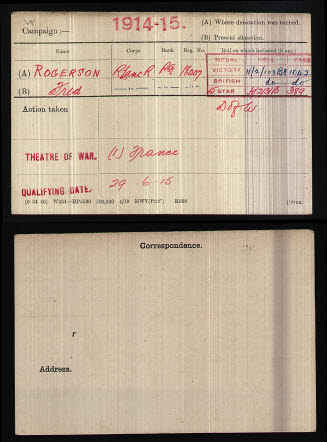 Campaign :— 1914-15. (A) Where decoration was earned.
(B) Present situation.
Name Corps Rank Reg. No. Roll on which included (if any).
MEDAL ROLL PAGE
(A) ROGERSON R Lanc R Pte 18007 VICTORY H/2/103B8 1042
(B) Fred —"— —"— BRITISH do do
15 STAR H/2/3B 389
Action taken D of W
THEATRE OF WAR. (1) France
QUALIFYING DATE. 29 - 6 - 15
(6 34 46) W234—HP5590 500,000 4/19 HWV(P240) K608 [Over.
Correspondence.
Address.